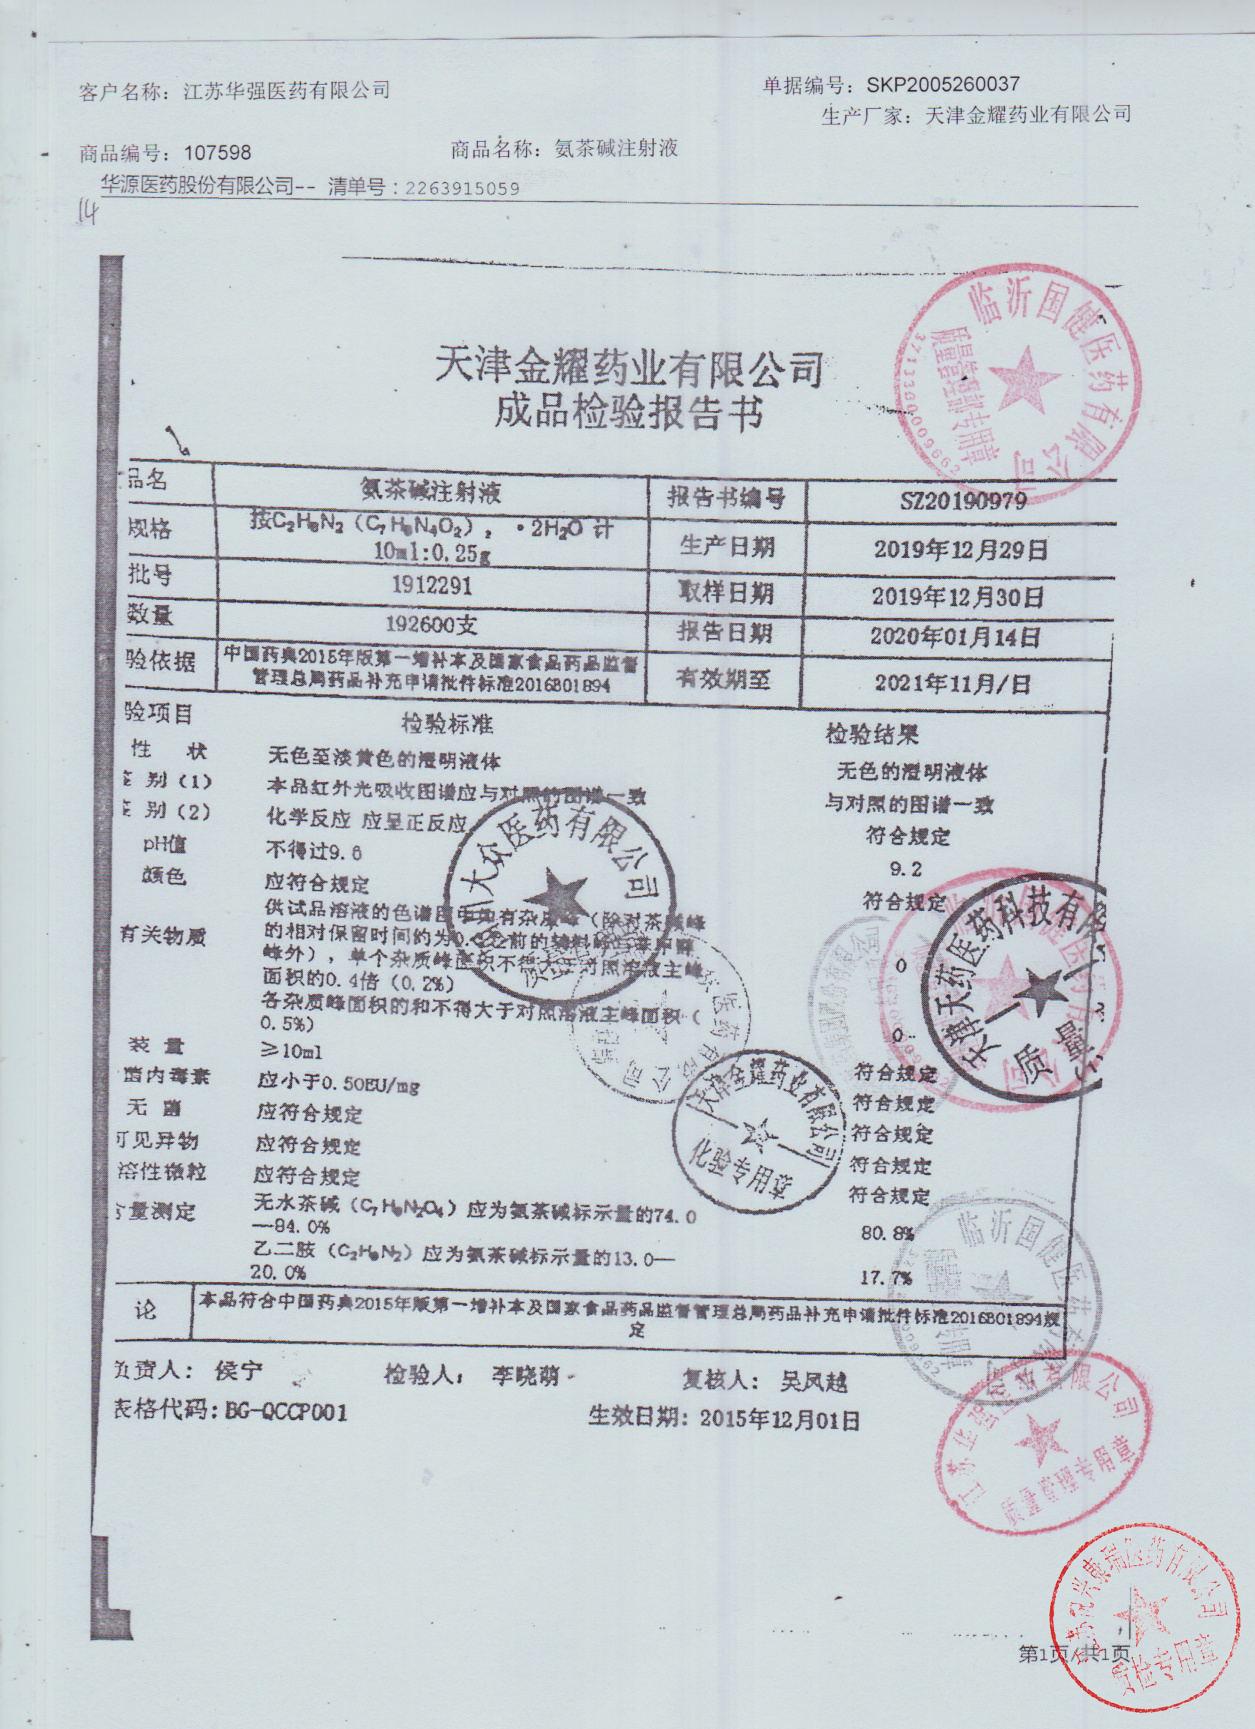 客户名称：江苏华强医药有限公司
单据编号：SKP2005260037
生产厂家：天津金耀药业有限公司
商品编号：107598
商品名称：氨茶碱注射液
华源医药股份有限公司-- 清单号：2263915059
14
天津金耀药业有限公司
成品检验报告书
品名 氨茶碱注射液 报告书编号 SZ20190979
规格 按C2H8N2（C7H8N4O2），·2H2O 计
10ml:0.25g
生产日期 2019年12月29日
批号 1912291 取样日期 2019年12月30日
数量 192600支 报告日期 2020年01月14日
验依据 中国药典2015年版第一增补本及国家食品药品监督
管理总局药品补充申请批件标准2016B01894
有效期至 2021年11月/日
验项目 检验标准 检验结果
性 状 无色至淡黄色的澄明液体 无色的澄明液体
别(1) 本品红外光吸收图谱应与对照的图谱一致 与对照的图谱一致
别(2) 化学反应 应呈正反应 符合规定
pH值 不得过9.6 9.2
颜色 应符合规定 符合规定
有关物质
供试品溶液的色谱图中如有杂质峰（除对茶碱峰
的相对保留时间约为0. 之前的辅料峰
峰外），单个杂质峰面积不得大于对照溶液主峰
面积的0.4倍（0.2%） 0
各杂质峰面积的和不得大于对照溶液主峰面积（
0.5%） 0
装 量 ≥10ml 符合规定
菌内毒素 应小于0.50EU/mg 符合规定
无 菌 应符合规定 符合规定
可见异物 应符合规定 符合规定
溶性微粒 应符合规定 符合规定
含量测定 无水茶碱（C7H8N2O4）应为氨茶碱标示量的74.0
—84.0% 80.8%
乙二胺（C2H8N2）应为氨茶碱标示量的13.0—
20.0% 17.7%
论 本品符合中国药典2015年版第一增补本及国家食品药品监督管理总局药品补充申请批件标准2016B01894规
定
负责人：侯宁 检验人：李晓萌 复核人：吴凤越
表格代码：BG-QCCP001 生效日期：2015年12月01日
临沂国健医药有限公司
质量管理部专用章
3713300009662
大众医药有限公司
天津天药医药科技有限
质量
天津金耀药业有限公司
化验专用章
临沂国健医药有限
江苏华强医药有限公司
兴康瑞医药有限公司
质检专用章
第1页/共1页